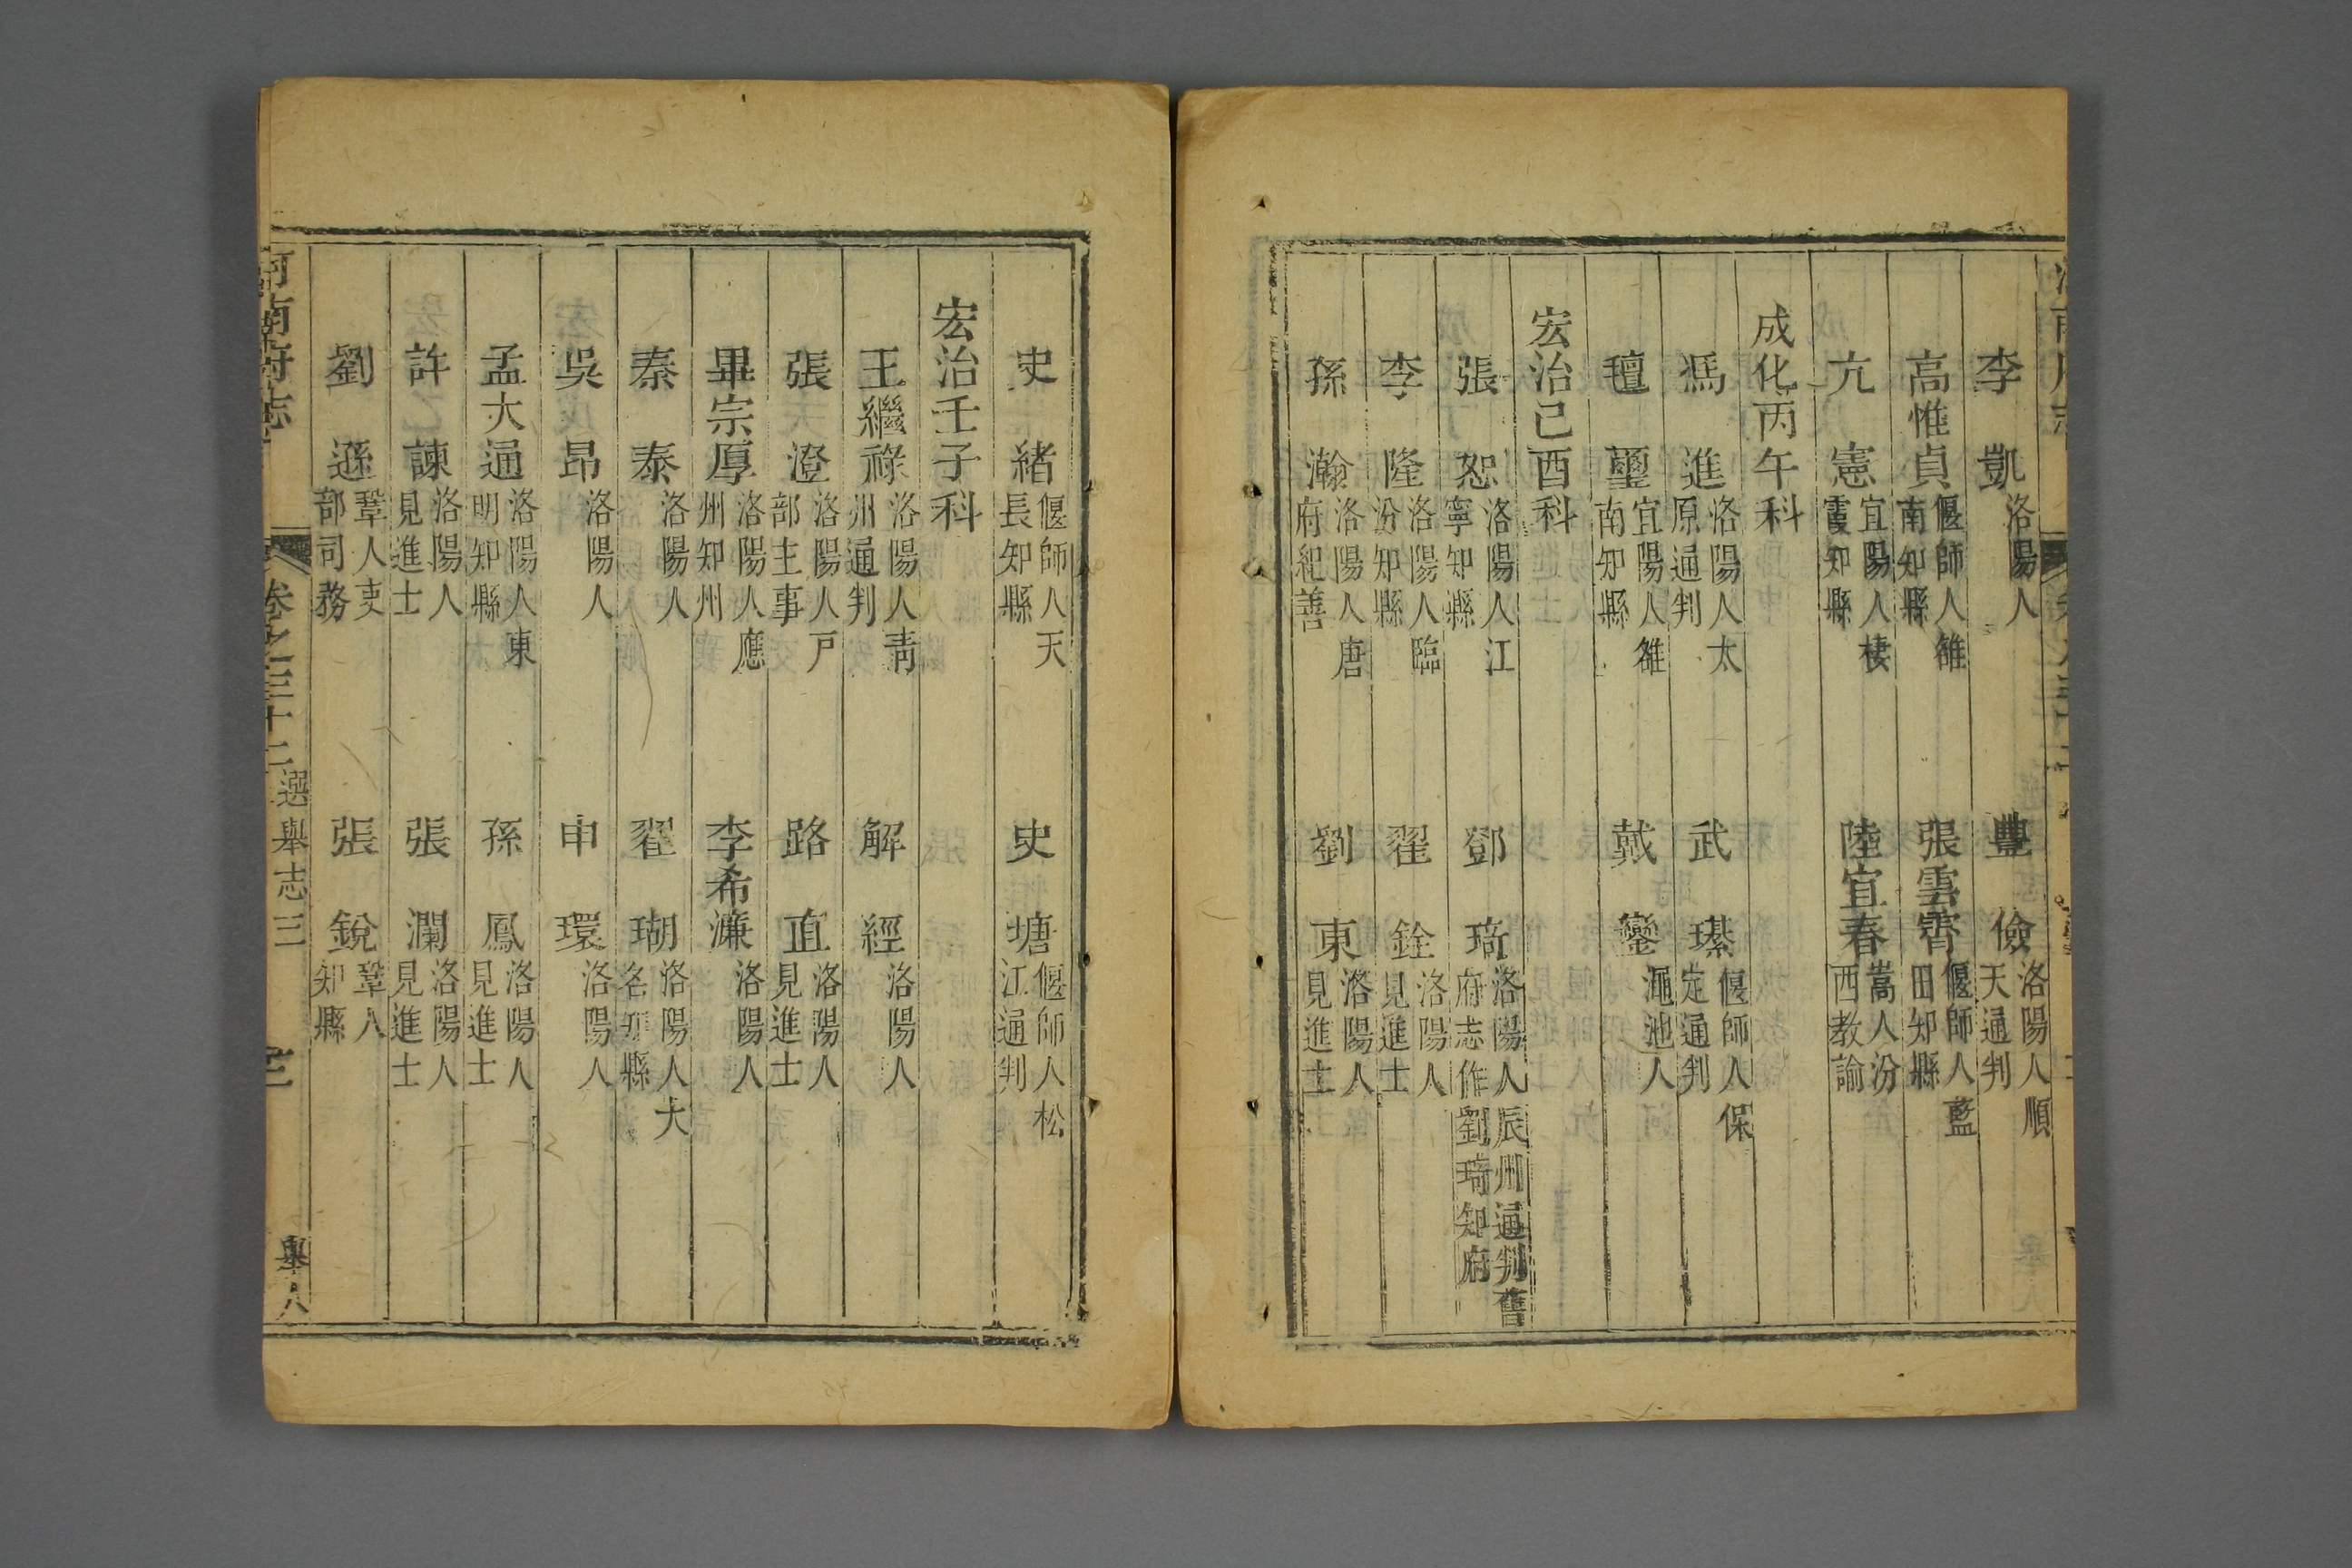 李凱 洛陽人 豊儉 洛陽人順天通判
高惟貞 偃師人雒南知縣 張雲霄 偃師人藍田知縣
亢憲 宜陽人棲霞知縣 陸宜春 嵩人汾西教諭
成化丙午科
馮進 洛陽人太原通判 武瑧 偃師人保定通判
璽 宜陽人雒南知縣 戴鑾 澠池人
宏治己酉科
張恕 洛陽人江寧知縣 鄧琦 洛陽人辰州通判舊府志作劉琦知府
李隆 洛陽人臨汾知縣 翟銓 洛陽人見進士
孫瀚 洛陽人唐府紀善 劉東 洛陽人見進士
史緒 偃師人天長知縣 史塘 偃師人松江通判
宏治壬子科
王繼祿 洛陽人靑州通判 解經 洛陽人
張澄 洛陽人戶部主事 路直 洛陽人見進士
畢宗厚 洛陽人應州知州 李希濂 洛陽人
秦泰 洛陽人 翟瑚 洛陽人大名知縣
吳昂 洛陽人 申環 洛陽人
孟大通 洛陽人東明知縣 孫鳳 洛陽人見進士
許諫 洛陽人見進士 張瀾 洛陽人見進士
劉遜 鞏人吏部司務 張銳 鞏人知縣
河南府志 卷之三十二 選舉志三 舉人